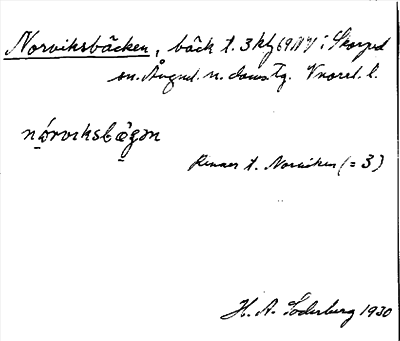 Norviksbäcken, bäck t. 3 i Skorped
sn. Ångml. n. domstg. Vnorrl. l.
nørviksbækən
Rinner t. Norviken (= 3)
H. A. Söderberg 1930